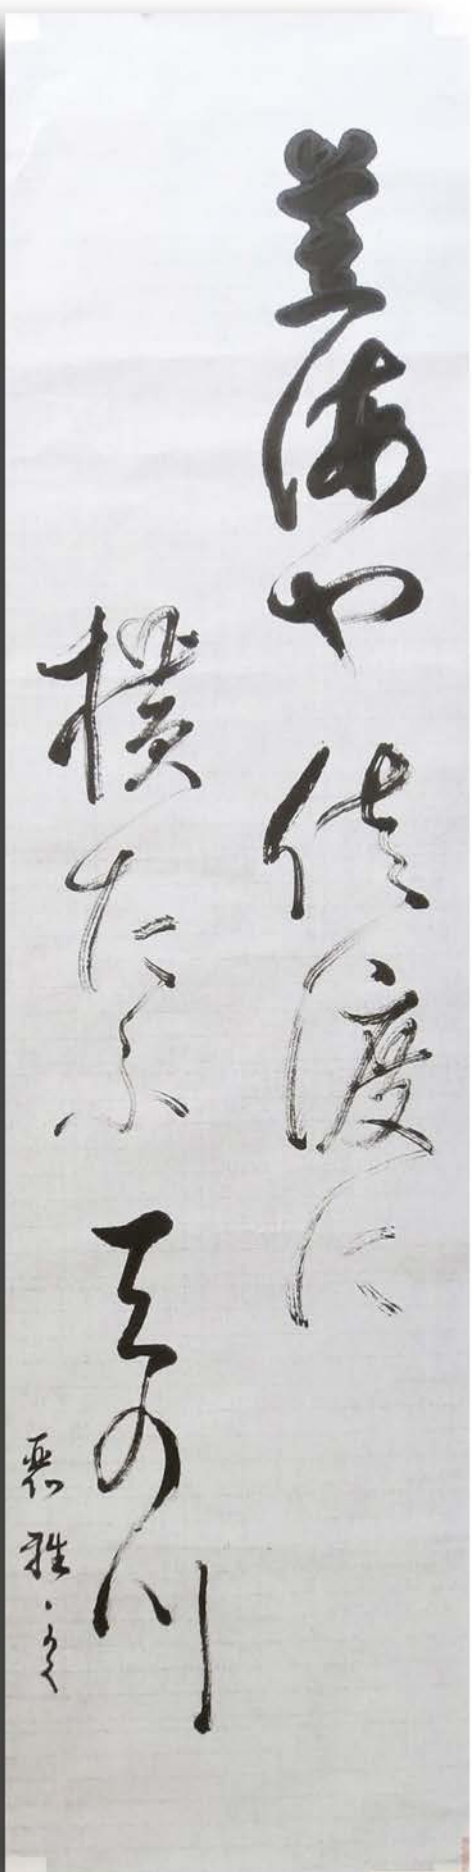 荒海や佐渡に
横たふ天の川
雅